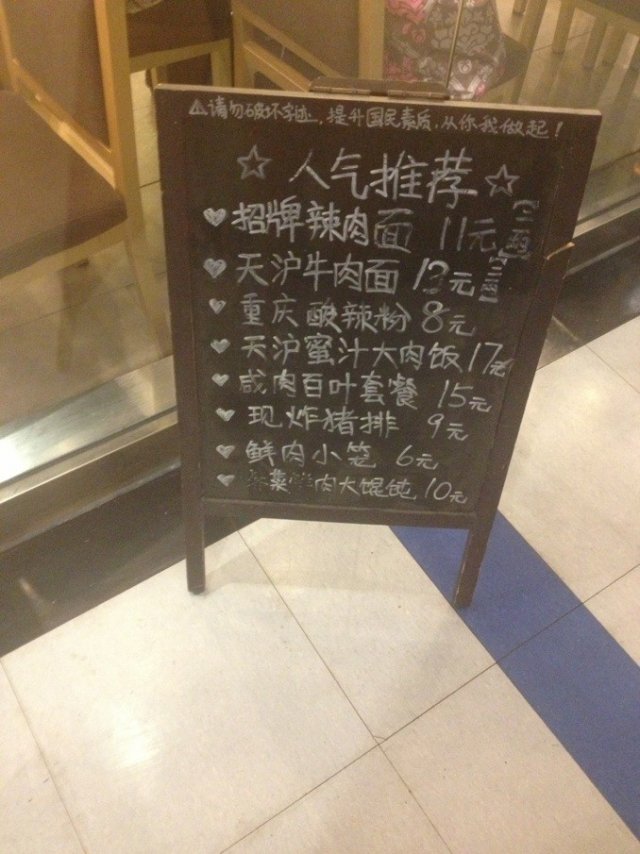 ⚠请勿破坏字迹,提升国民素质,从你我做起!
☆人气推荐☆
♥招牌辣肉面 11元【二两】
♥天沪牛肉面 13元【二两】
♥重庆酸辣粉 8元
♥天沪蜜汁大肉饭17元
♥咸肉百叶套餐 15元
♥现炸猪排 9元
♥鲜肉小笼 6元
♥菜鲜肉大馄饨 10元